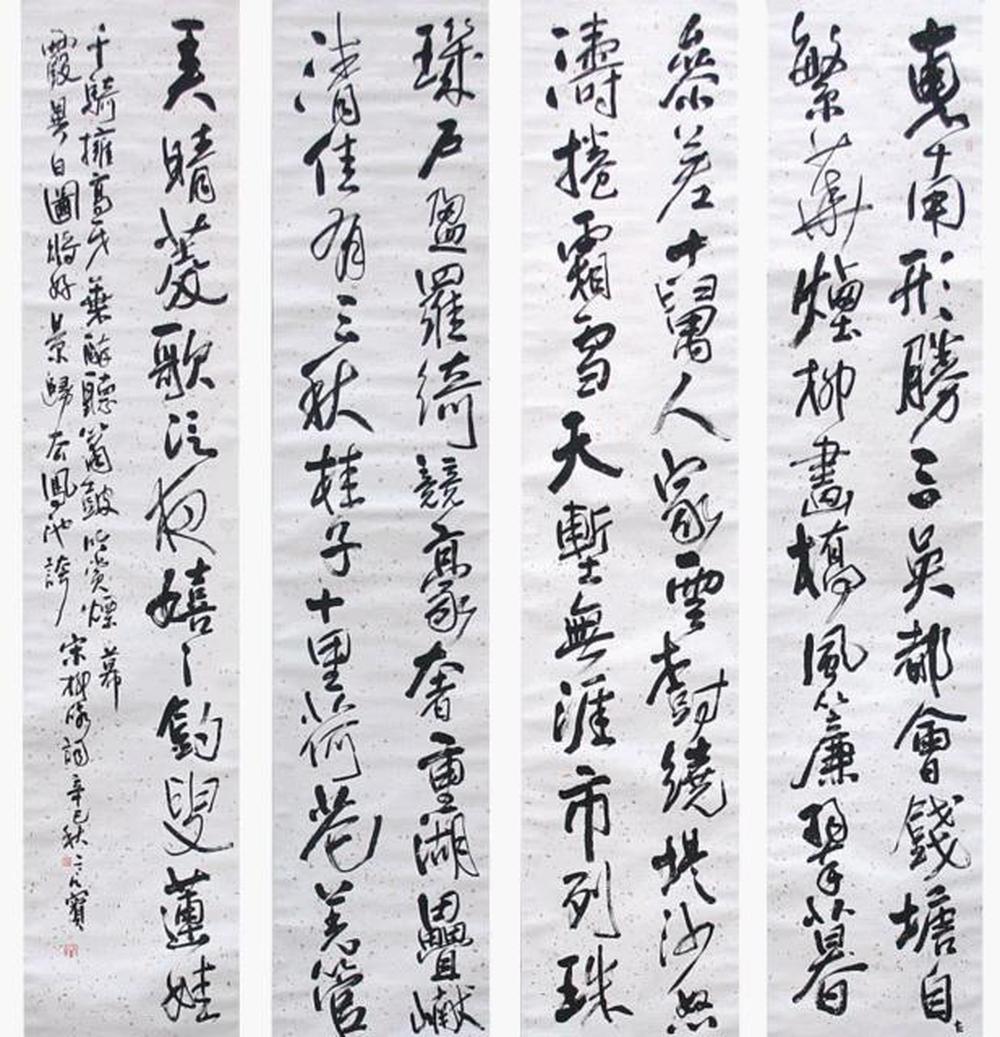 東南形勝三吳都會錢塘自
繁華煙柳畫橋風簾翠暮
參差十萬人家雲樹繞堤沙怒
濤捲霜雪天塹無涯市列珠
璣戶盈羅綺競豪奢重湖疊巘
清佳有三秋桂子十里荷花羌管
弄晴菱歌泛夜嬉々釣叟蓮娃
千騎擁高牙乘醉聽簫鼓吟賞煙
霞異日圖將好景歸去鳳池誇
幕
宋柳永詞辛巳秋寶